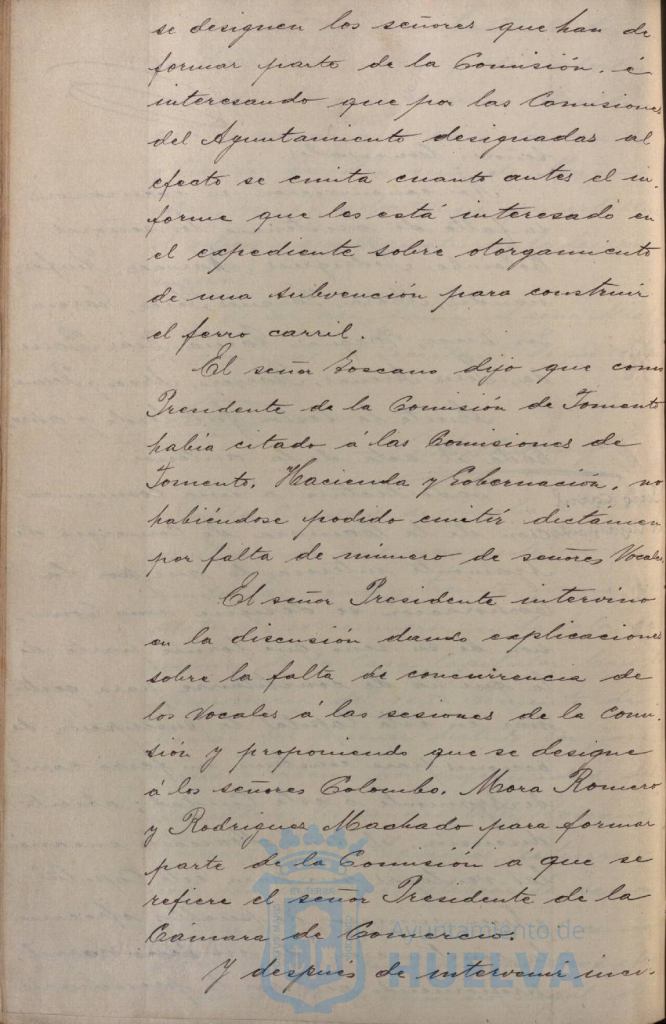 se designen los señores que han de
formar parte de la Comisión, é
interesando que por las Comisiones
del Ayuntamiento designadas al
efecto se emita cuanto antes el in-
forme que les está interesado en
el expediente sobre otorgamiento
de una subvención para construir
el ferro carril.
El señor Toscano dijo que como
Presidente de la Comisión de Fomento
había citado á las Comisiones de
Fomento, Hacienda y Gobernación, no
habiéndose podido emitir dictámen
por falta de número de señores Vocales.
El señor Presidente intervino
en la discusión dando explicaciones
sobre la falta de concurrencia de
los Vocales á las sesiones de la Comi-
sión y proponiendo que se designe
á los señores Colombo, Mora Romero
y Rodriguez Machado para formar
parte de la Comisión á que se
refiere el señor Presidente de la
Cámara de Comercio.
Y después de intervenir inci-
Ayuntamiento de
HUELVA